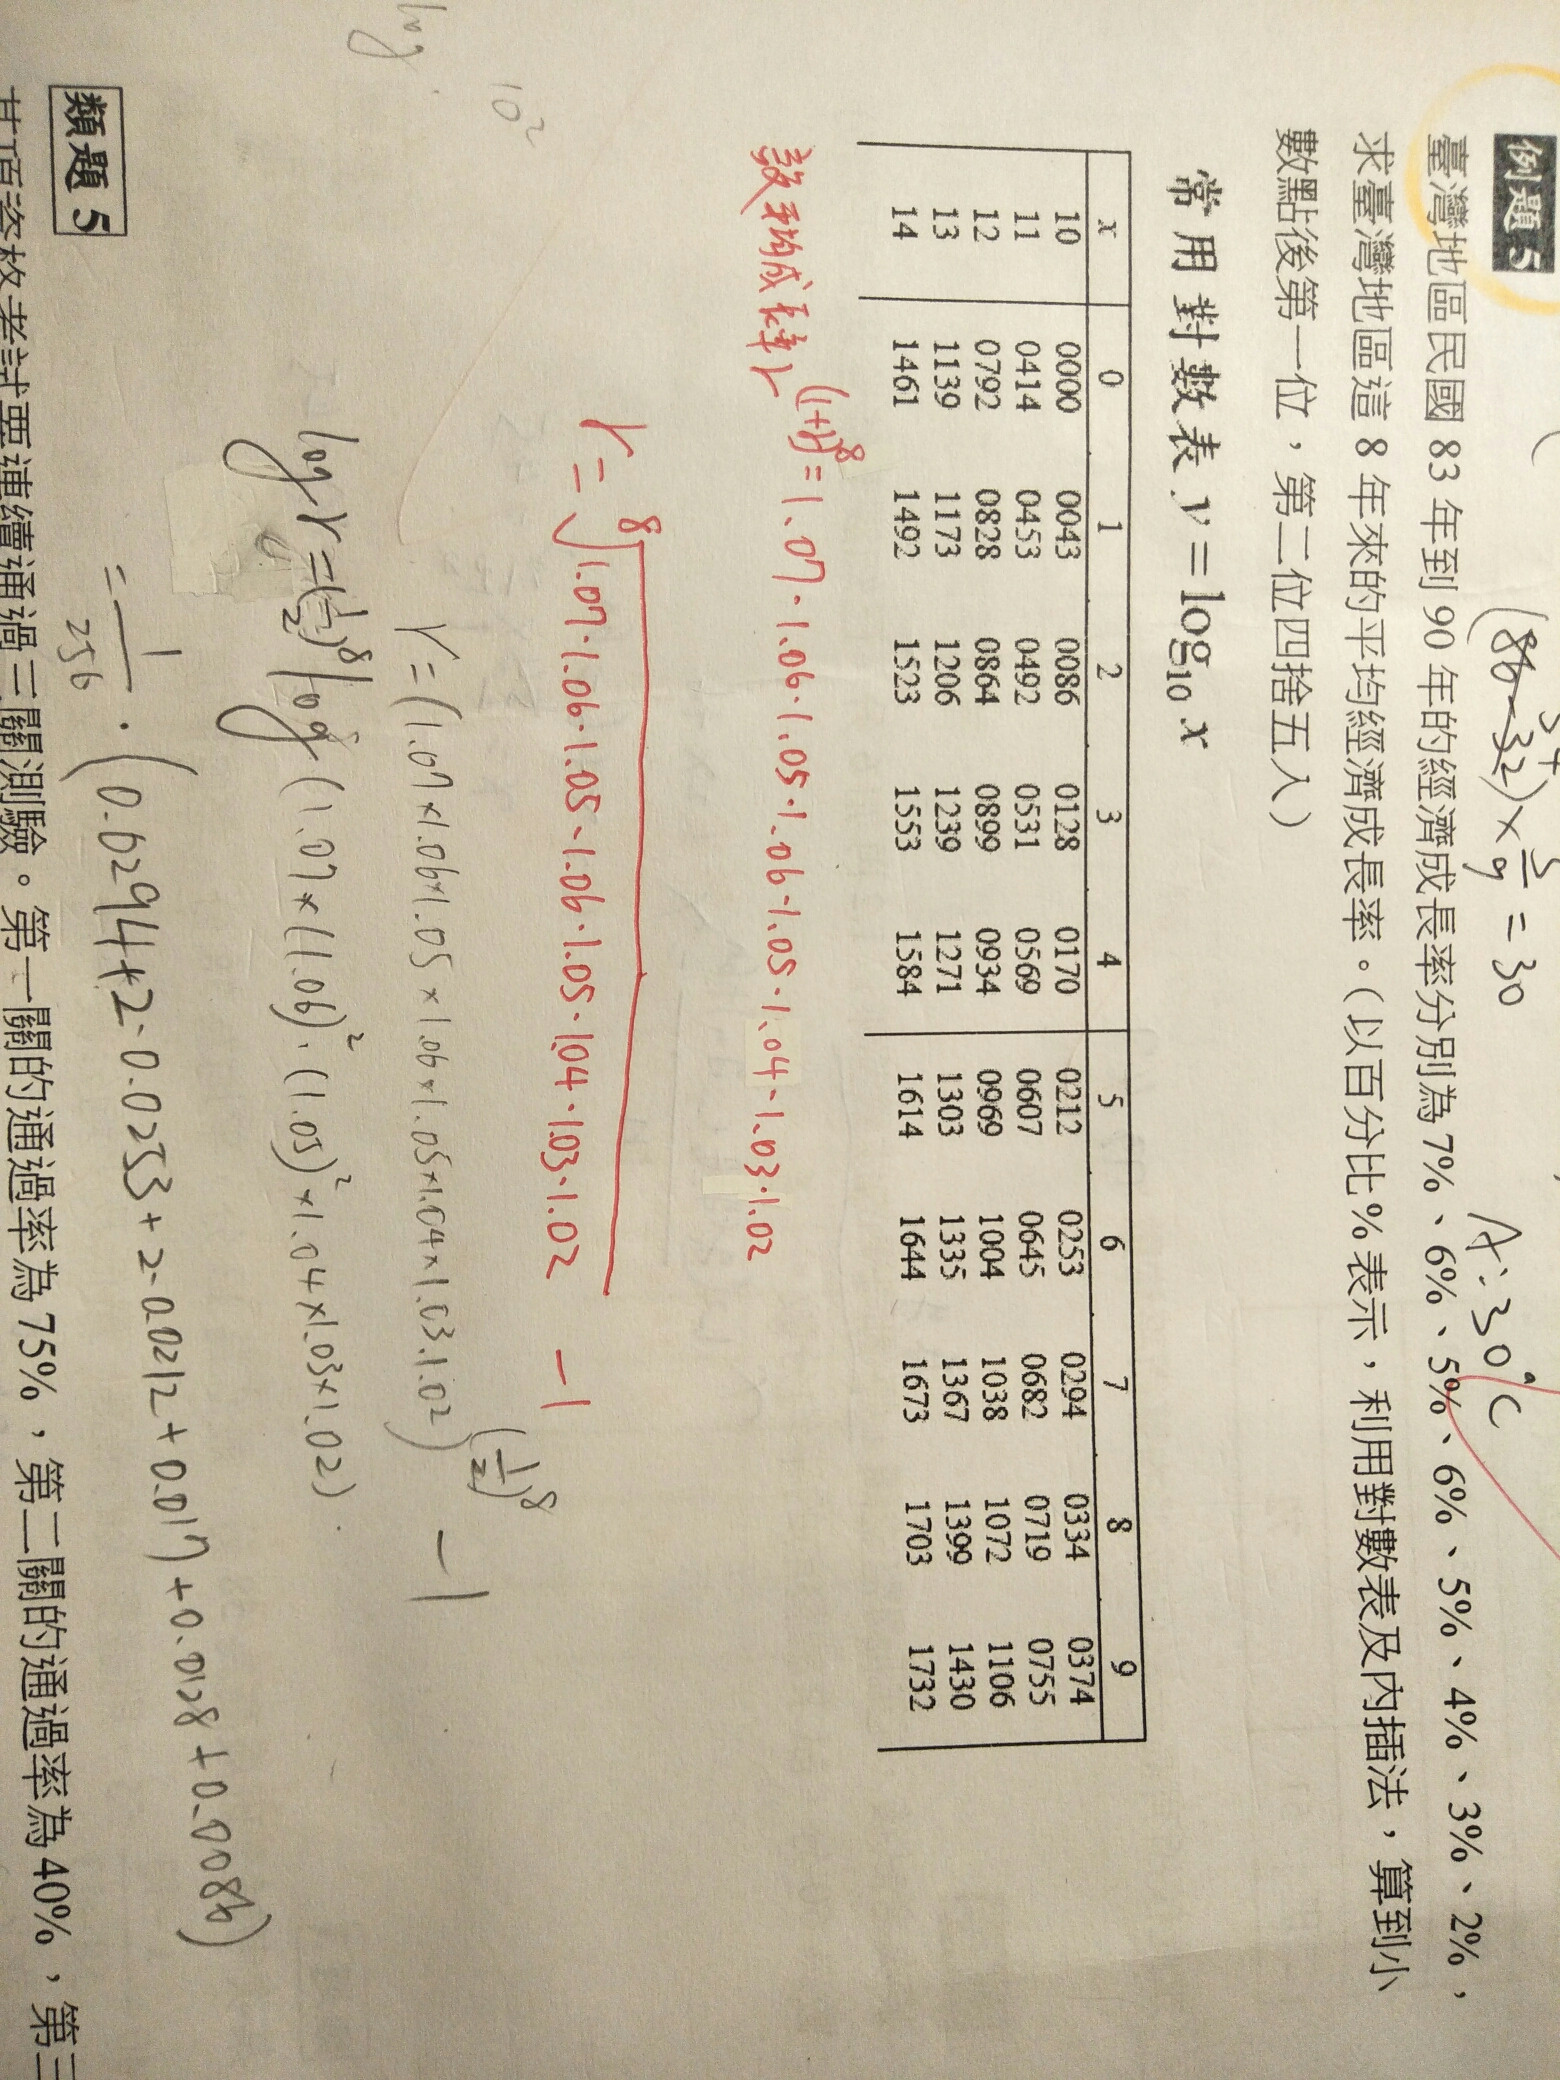 (86-32)×5/9=30 A:30°C
例題5
臺灣地區民國 83 年到 90 年的經濟成長率分別為 7%、6%、5%、6%、5%、4%、3%、2%,
求臺灣地區這 8 年來的平均經濟成長率。(以百分比%表示,利用對數表及內插法,算到小
數點後第一位,第二位四捨五入)
常用對數表 y=log₁₀ x
x 0 1 2 3 4 5 6 7 8 9
10 0000 0043 0086 0128 0170 0212 0253 0294 0334 0374
11 0414 0453 0492 0531 0569 0607 0645 0682 0719 0755
12 0792 0828 0864 0899 0934 0969 1004 1038 1072 1106
13 1139 1173 1206 1239 1271 1303 1335 1367 1399 1430
14 1461 1492 1523 1553 1584 1614 1644 1673 1703 1732
設平均成長率r (1+r)⁸=1.07·1.06·1.05·1.06·1.05·1.04·1.03·1.02
r=⁸√1.07·1.06·1.05·1.06·1.05·1.04·1.03·1.02 -1
10²
r=(1.07×1.06×1.05×1.06×1.05×1.04×1.03·1.02)^(1/2)⁸ -1
log
log r=(1/2)⁸ log(1.07×(1.06)²·(1.05)²×1.04×1.03×1.02)
=1/256·(0.0294+2·0.0253+2·0.0212+0.017+0.0128+0.0086)
類題5
某項資格考試要連續通過三關測驗。第一關的通過率為 75%,第二關的通過率為 40%,第三